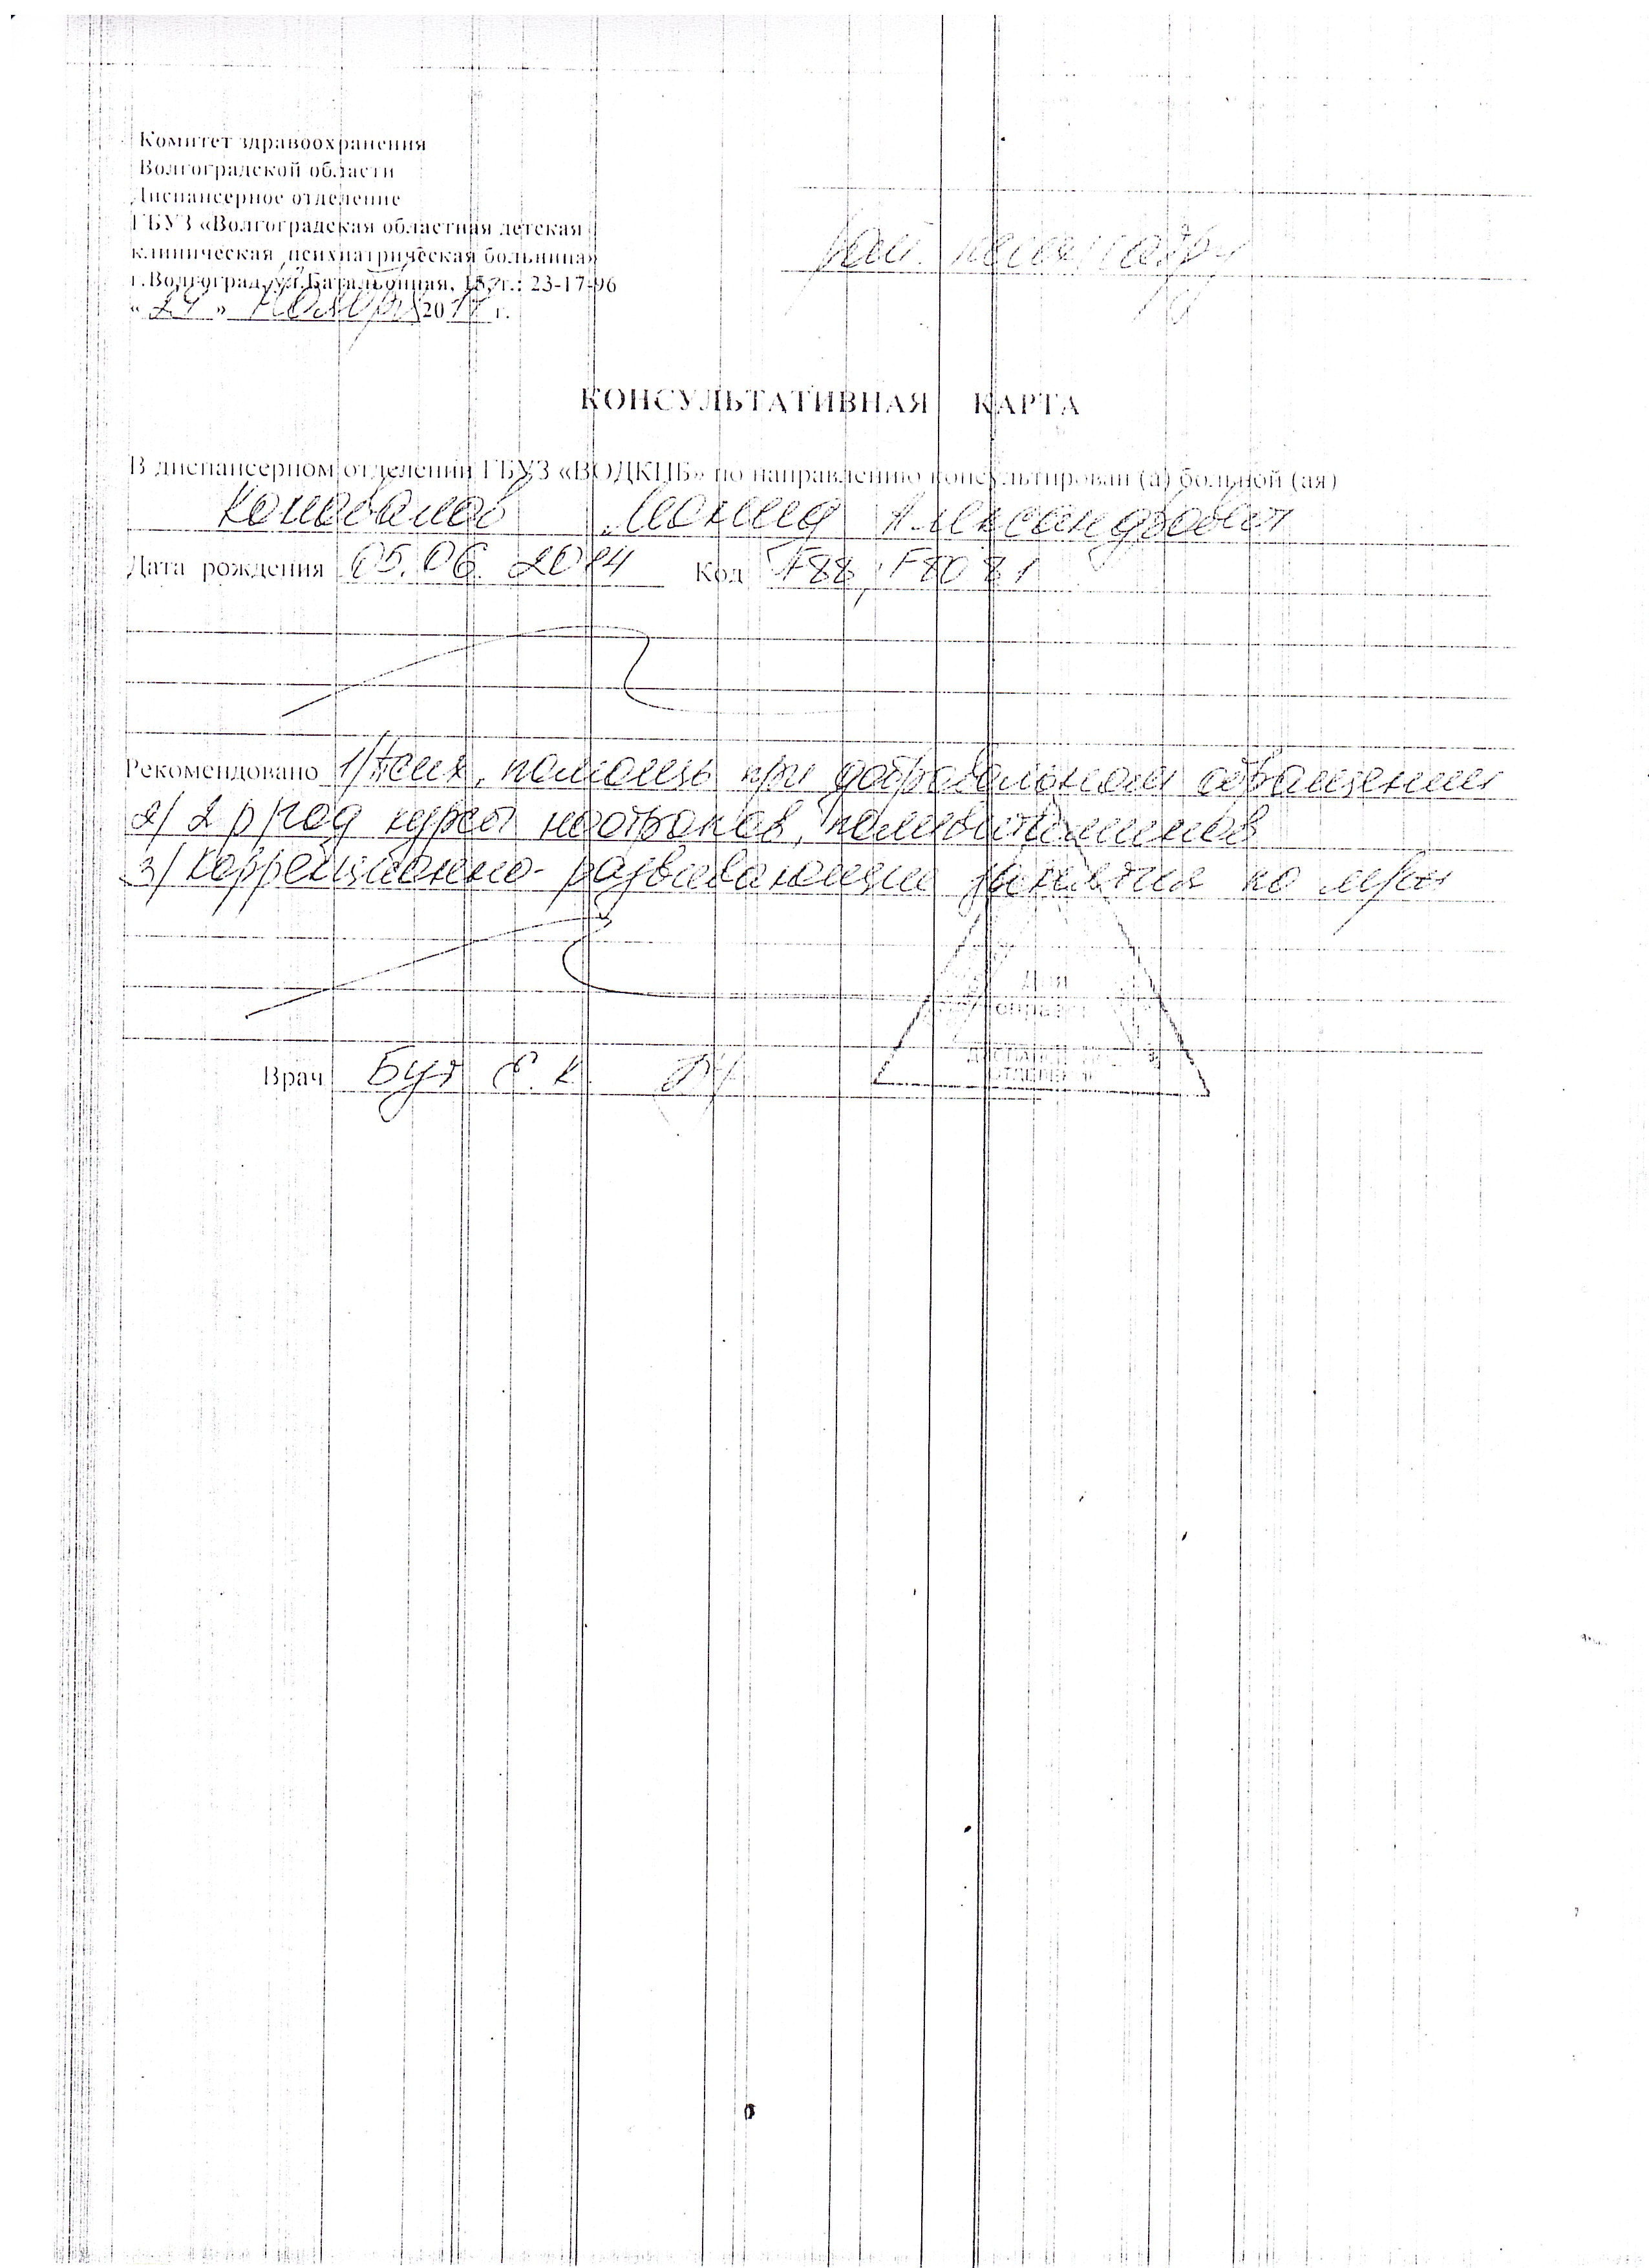 Комитет здравоохранения
Волгоградской области
Диспансерное отделение
ГБУЗ «Волгоградская областная детская
клиническая психиатрическая больница»
г.Волгоград, ул.Батальонная, 15, т.: 23-17-96
«29» Ноября 20 г.
Рай. психиатру
КОНСУЛЬТАТИВНАЯ КАРТА
В диспансерном отделении ГБУЗ «ВОДКПБ» по направлению консультирован (а) больной (ая)
Коновалов Леонид Александрович
Дата рождения 05.06.2014 Код F88, F80 81
Рекомендовано 1/ псих. помощь при добровольном обращении
2/ 2 р/год курсы ноотропов, поливитаминов
3/ Коррекционно-развивающие занятия по
Для
справок
Врач Бут Е.К.